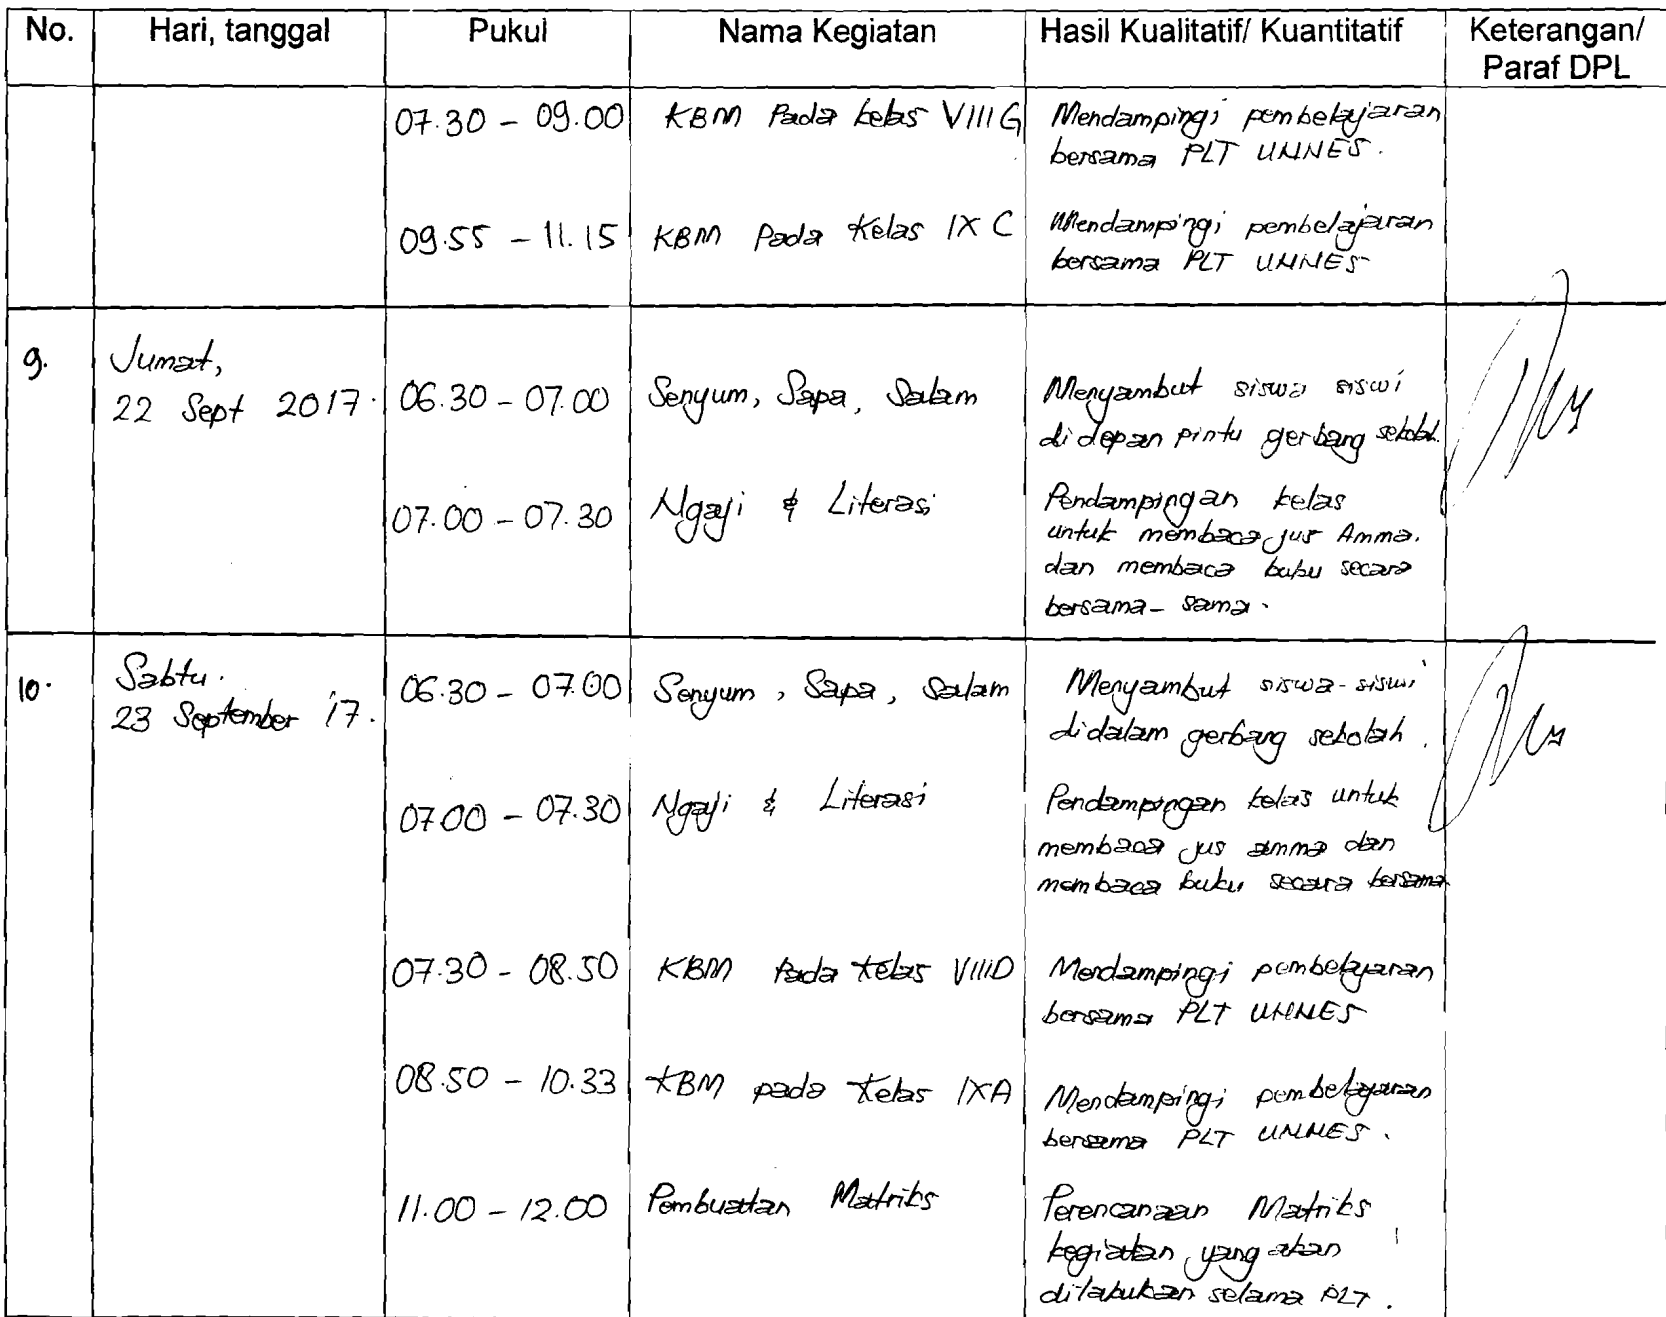 No. Hari, tanggal Pukul Nama Kegiatan Hasil Kualitatif/ Kuantitatif Keterangan/
Paraf DPL
07.30 - 09.00 KBM Pada kelas VIII G Mendampingi pembelajaran
bersama PLT UNNES.
09.55 - 11.15 KBM Pada Kelas IX C Mendampingi pembelajaran
bersama PLT UNNES
9. Jumat,
22 Sept 2017. 06.30 - 07.00 Senyum, Sapa, Salam Menyambut siswa siswi
didepan pintu gerbang sekolah.
07.00 - 07.30 Ngaji & Literasi Pendampingan kelas
untuk membaca jus Amma.
dan membaca buku secara
bersama - sama.
10. Sabtu.
23 September 17. 06.30 - 07.00 Senyum, Sapa, Salam Menyambut siswa-siswi
didalam gerbang sekolah.
07.00 - 07.30 Ngaji & Literasi Pendampingan kelas untuk
membaca jus amma dan
membaca buku secara bersama
07.30 - 08.50 KBM Pada Kelas VIIID Mendampingi pembelajaran
bersama PLT UNNES
08.50 - 10.33 KBM pada Kelas IXA Mendampingi pembelajaran
bersama PLT UNNES.
11.00 - 12.00 Pembuatan Matriks Perencanaan Matriks
kegiatan yang akan
dilakukan selama PLT.